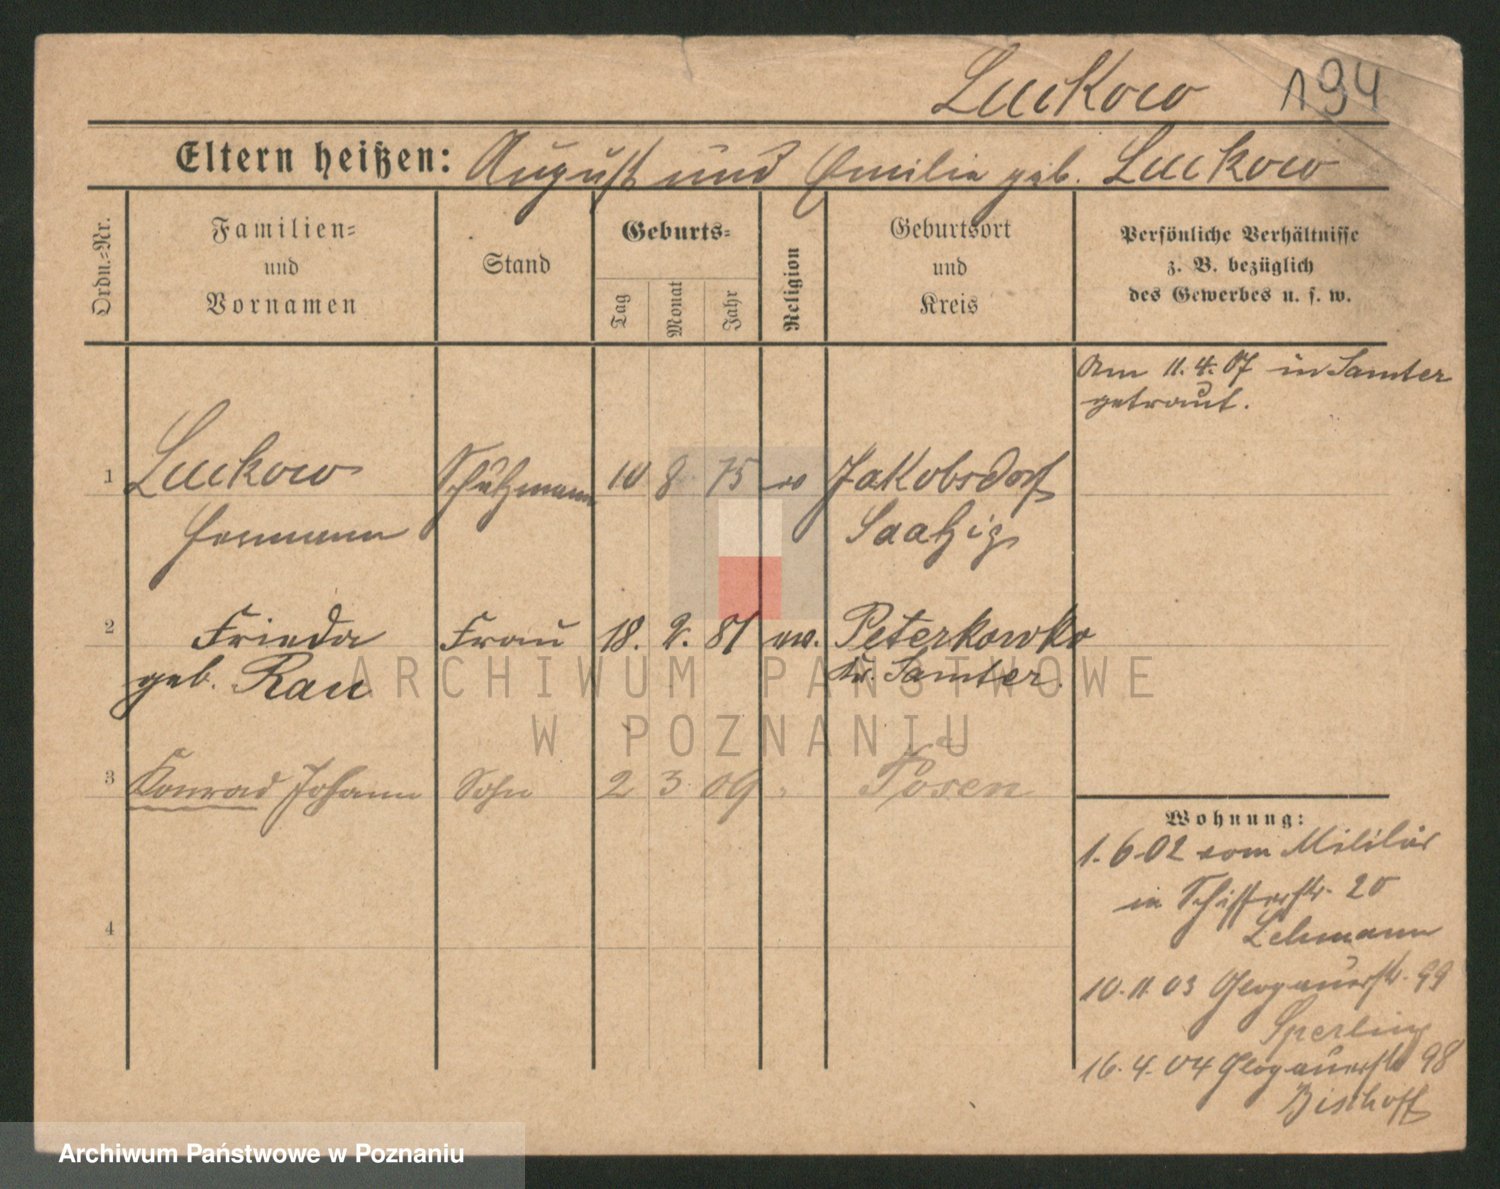 Luckow 194
Eltern heißen: August und Emilie geb. Luckow
Ordn.-Nr.
Familien-
und
Vornamen
Stand
Geburts-
Tag
Monat
Jahr
Religion
Geburtsort
und
Kreis
Persönliche Verhältnisse
z. B. bezüglich
des Gewerbes u. s. w.
Am 11.4.07 in Samter
getraut.
1 Luckow Schutzmann 10 8 75 ev Jakobsdorf
Hermann Saatzig
2 Frieda Frau 18. 2. 81 ev. Peterkowko
geb. Rau Kr. Samter.
3 Konrad Johann Sohn 2 3 09 Posen
4
Wohnung:
1.6.02 vom Militär
in Schifferstr. 20
Lehmann
10.11.03 Glogauerstr. 99
Sperling
16.4.04 Glogauerstr 98
Bischoff
ARCHIWUM PAŃSTWOWE
W POZNANIU
Archiwum Państwowe w Poznaniu